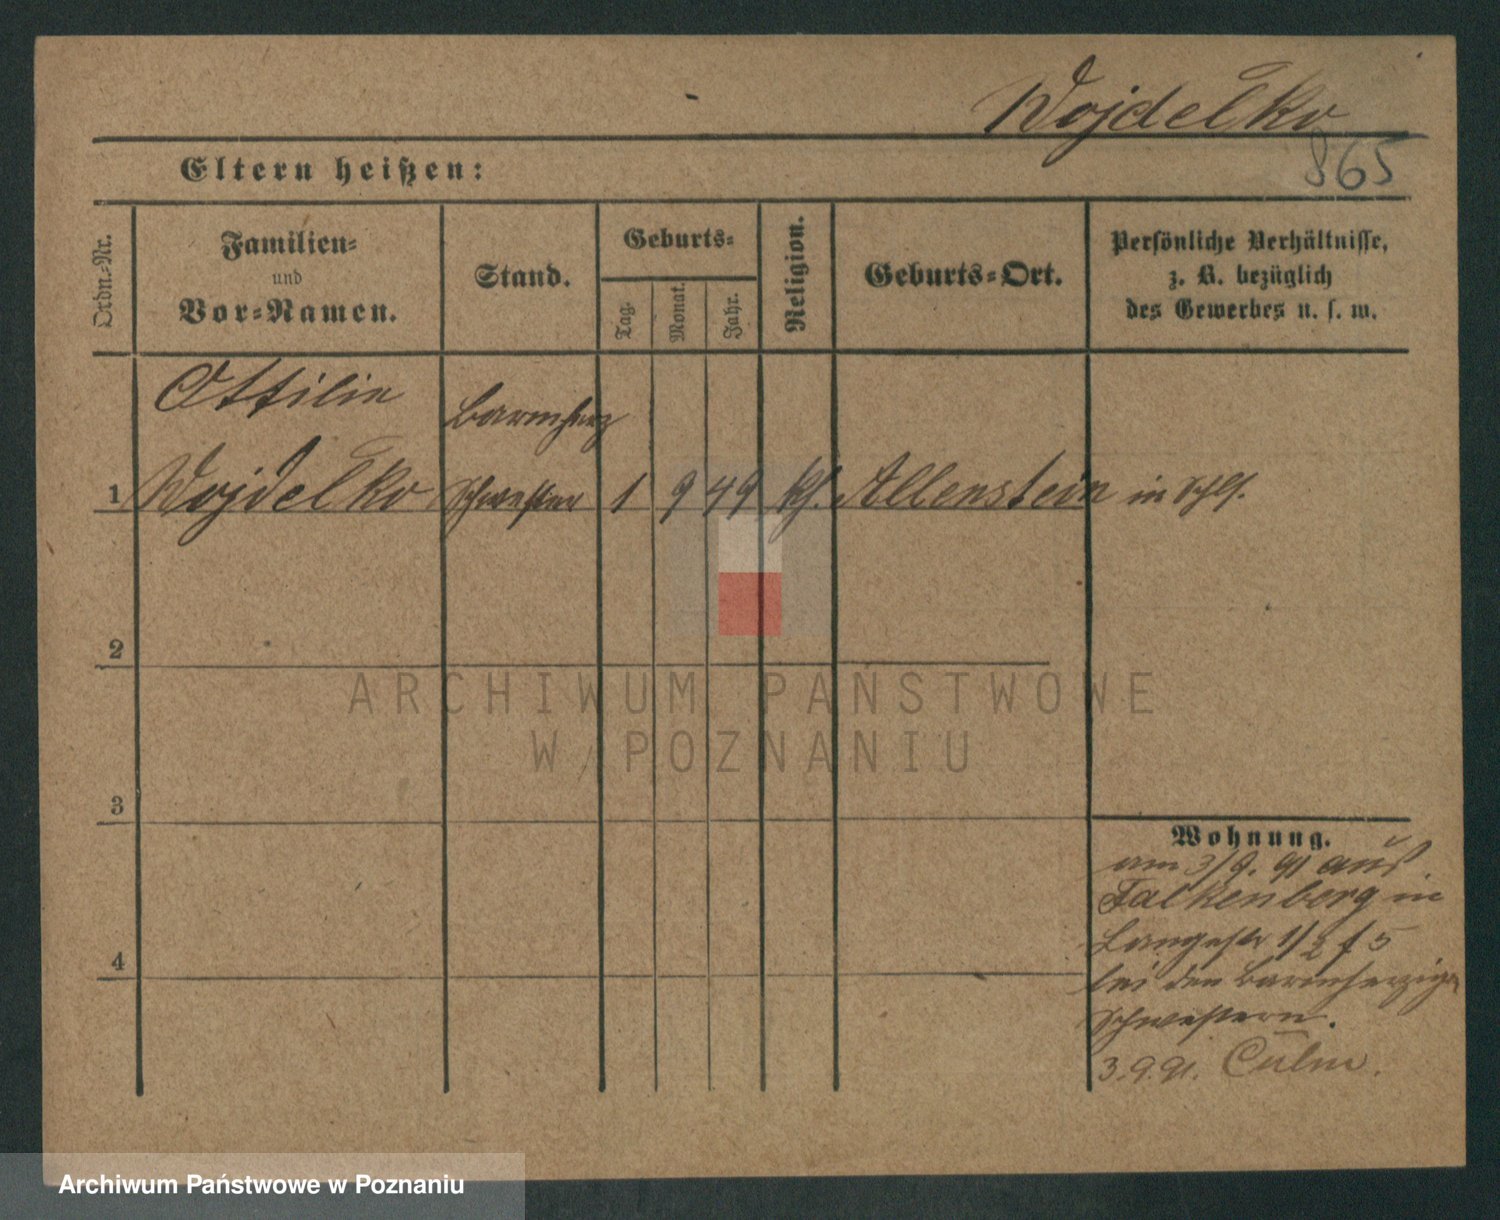 Wojdelko
865
Eltern heißen:
Ordn.-Nr.
Familien-
und
Vor-Namen.
Stand.
Geburts-
Tag.
Monat.
Jahr.
Religion.
Geburts-Ort.
Persönliche Verhältnisse,
z. B. bezüglich
des Gewerbes u. s. w.
Ottilie
barmherz
1 Wojdelko Schwester 1 9 49 kth. Allenstein in
2
3
4
Wohnung.
am 3/9. 91 aus
Falkenberg in
Langestr 1/2 f 5
bei den barmherzigen
Schwestern.
3.9.91. Culm.
ARCHIWUM PAŃSTWOWE
W POZNANIU
Archiwum Państwowe w Poznaniu